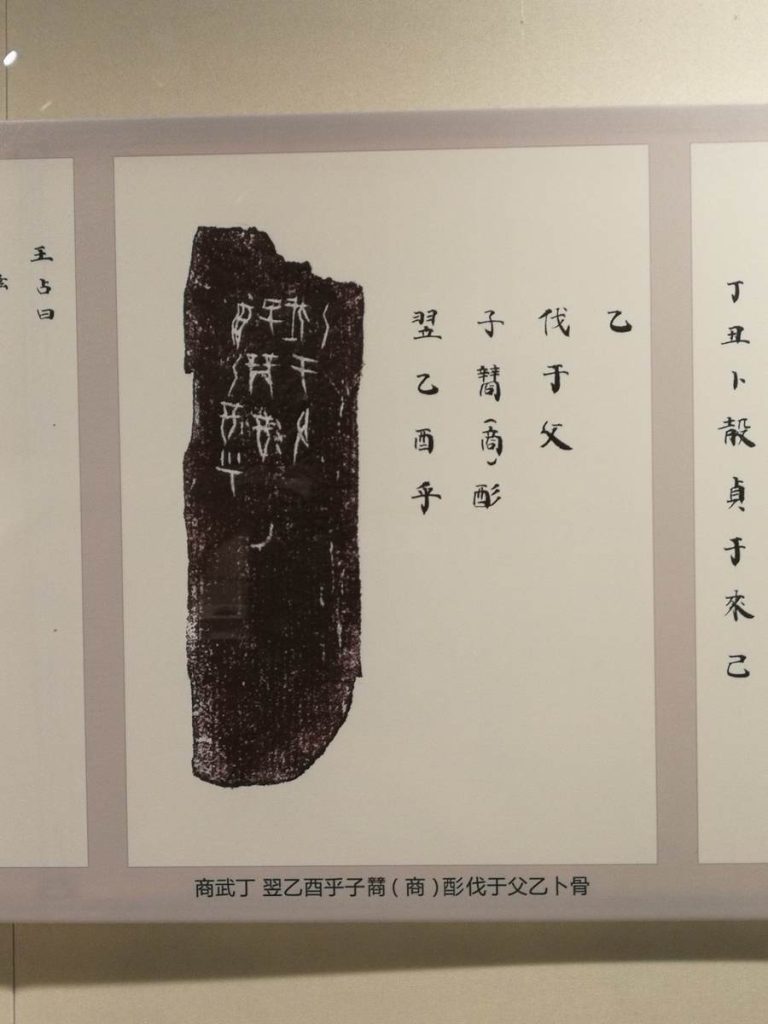 王占曰
翌乙酉乎
子(商)
伐于父
乙
丁丑卜㱿貞于來己
商武丁 翌乙酉乎子(商)伐于父乙卜骨